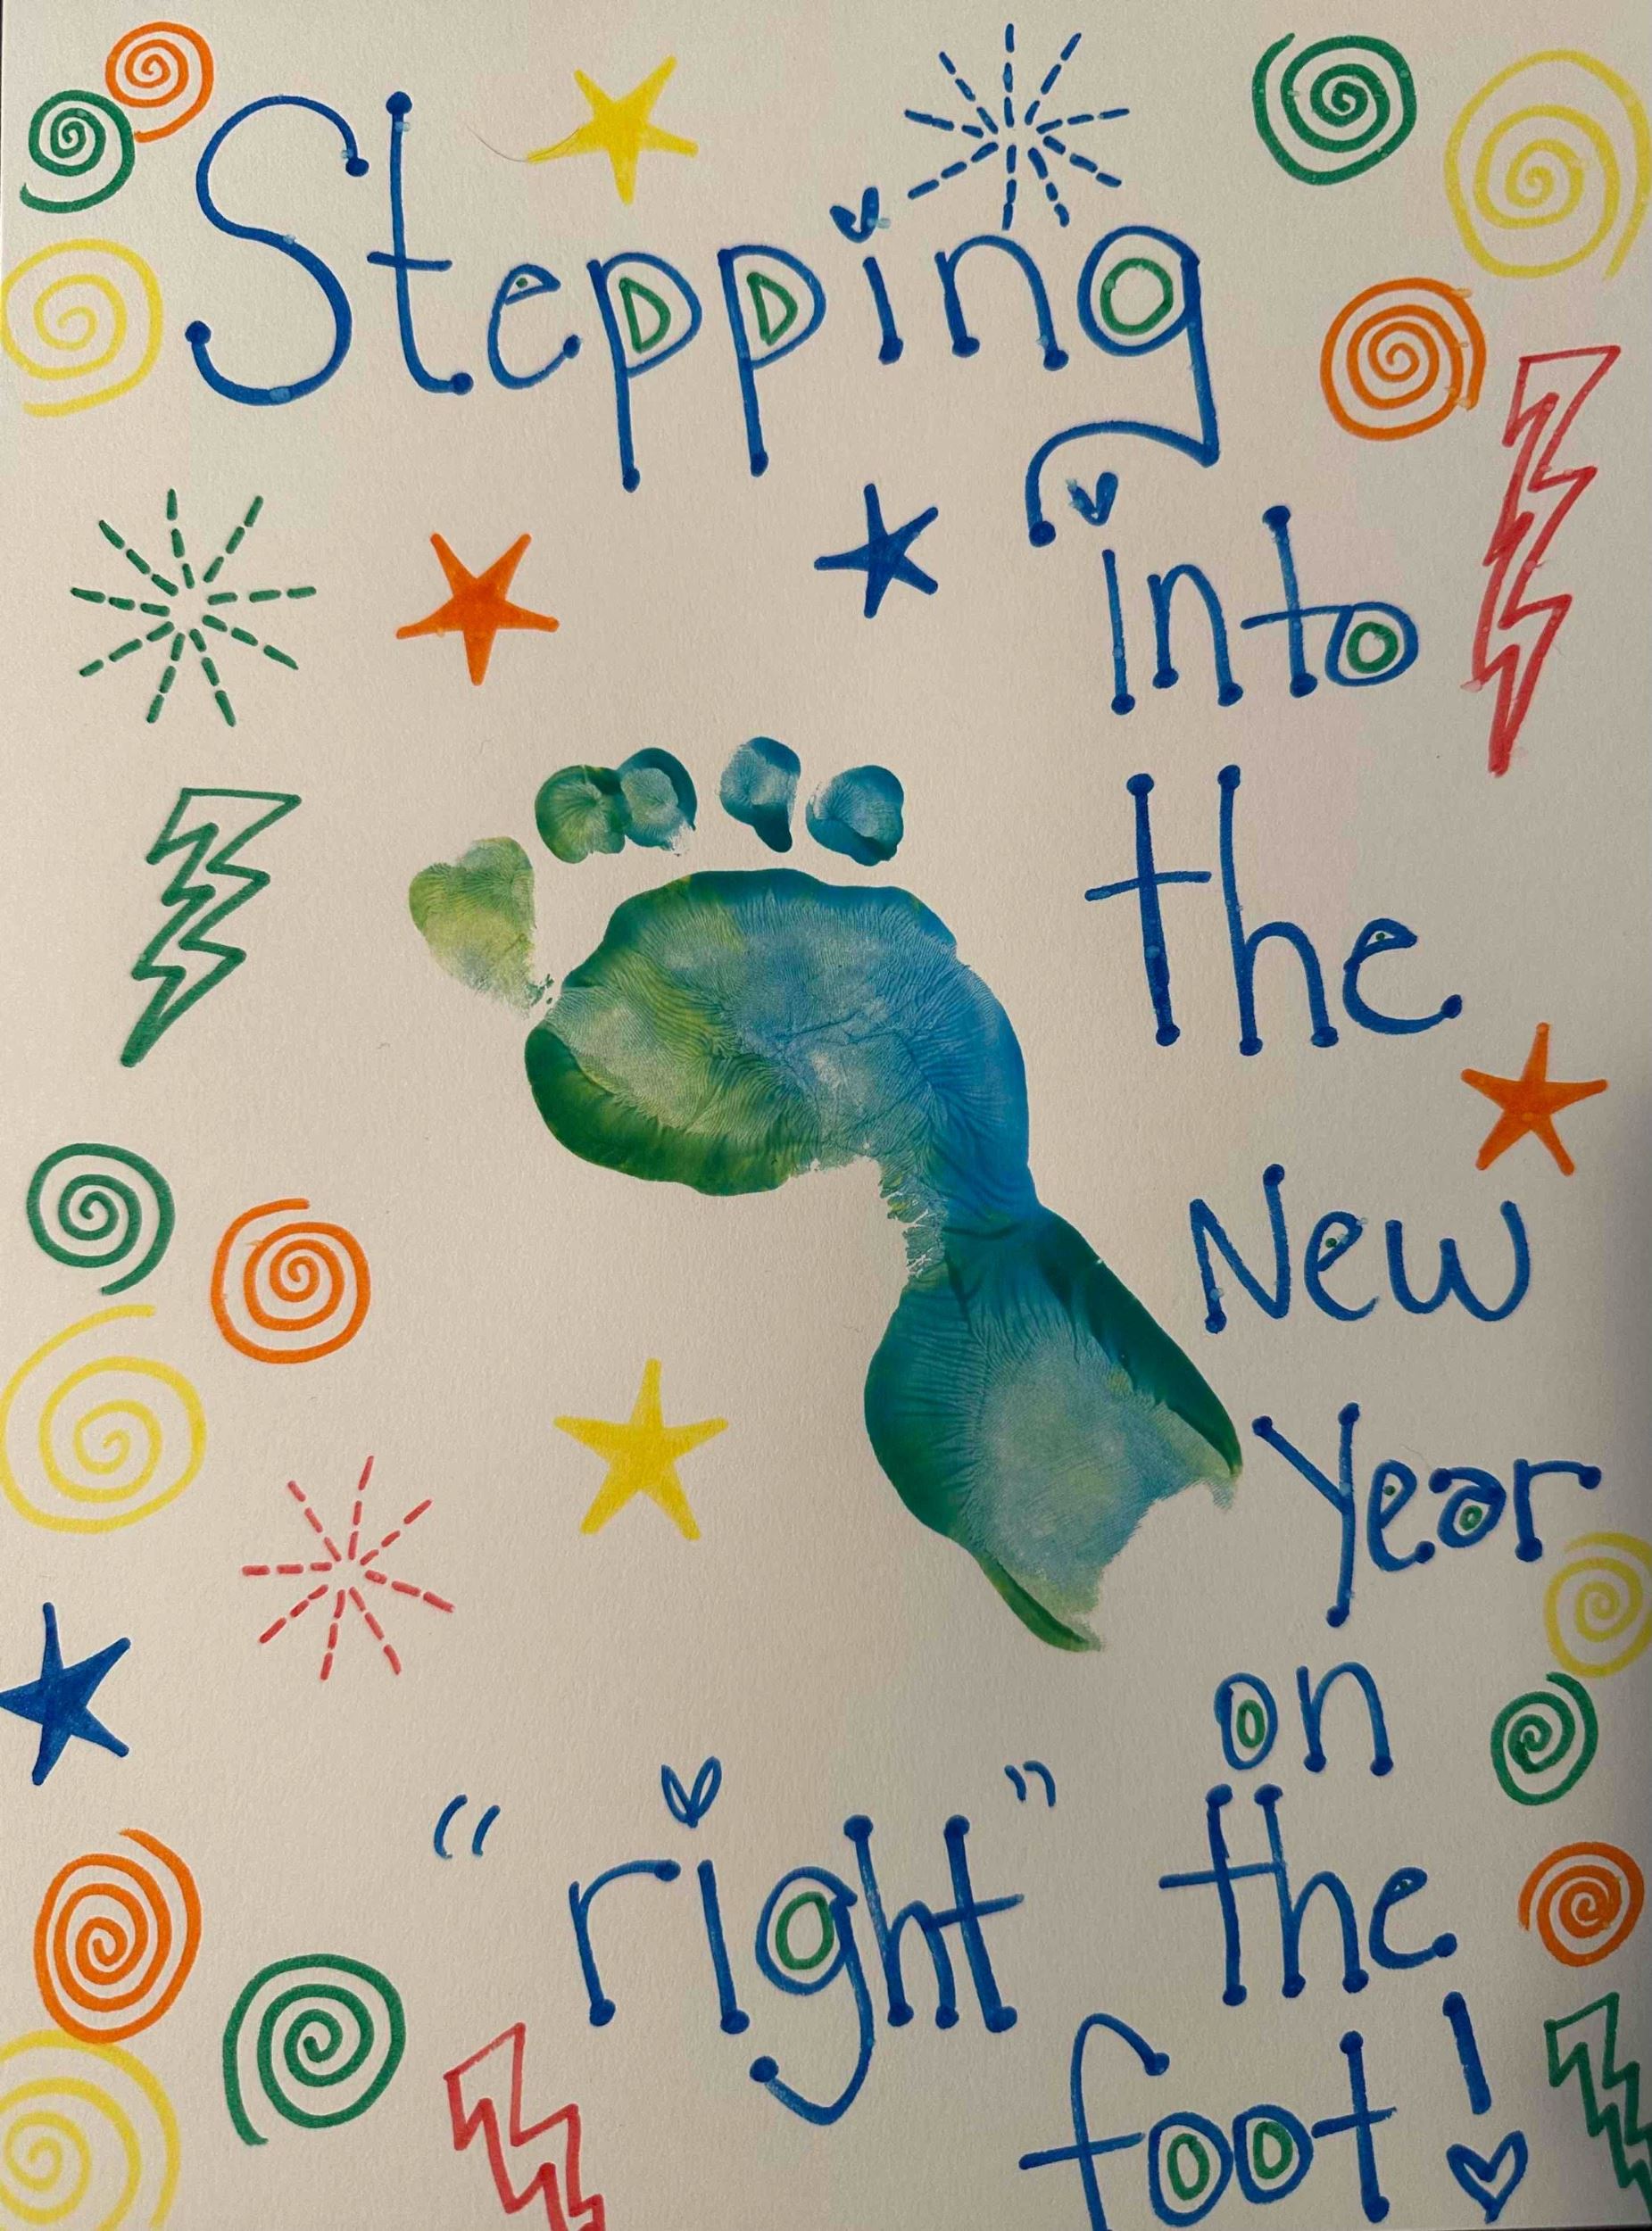 Stepping
into
the
New
Year
on
"right" the
foot!